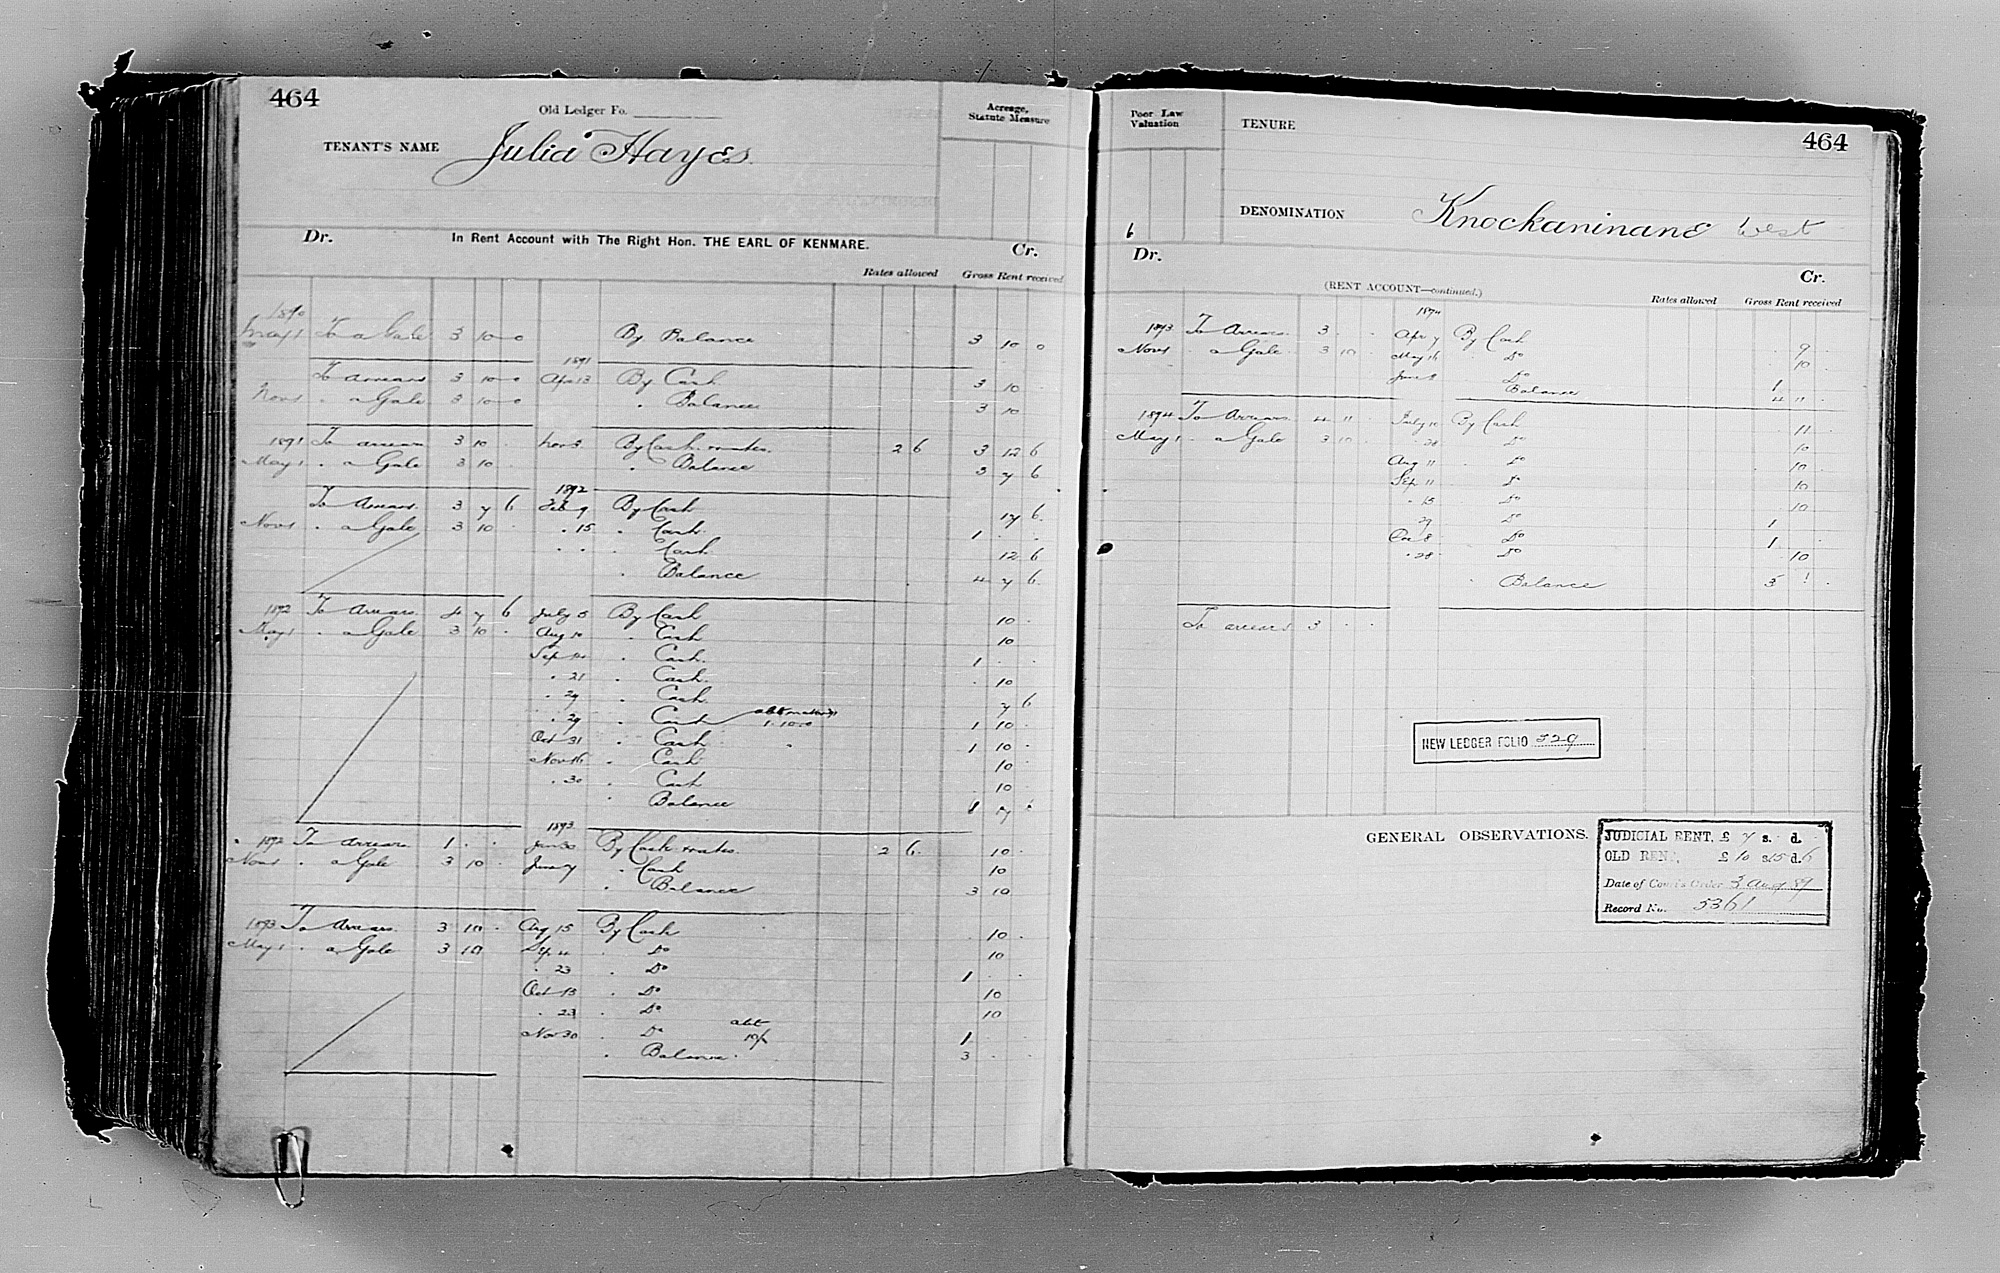 464
Old Ledger Fo.
Acreage, Statute Measure
TENANT'S NAME Julia Hayes.
Dr. In Rent Account with The Right Hon. THE EARL OF KENMARE. Cr.
Rates allowed Gross Rent received
1890
May 1 To a Gale 3 10 0 By Balance 3 10 0
1891
To arrears 3 10 0 Apr 13 By Cash 3 10
Nov 1 . a Gale 3 10 0 . Balance 3 10
1891 To arrears 3 10 . Nov 3 By Cash & rates. 2 6 3 12 6
May 1 . a Gale 3 10 . Balance 3 7 6
1892
To Arrears. 3 7 6 Feb 9 By Cash 17 6
Nov 1 . a Gale 3 10 . . 15 . Cash 1 . .
. . . Cash 12 6
. Balance 4 7 6
1892 To Arrears. 4 7 6 July 5 By Cash 10 .
May 1 . a Gale 3 10 . Aug 10 . Cash 10
Sep 14 . Cash. 1 . .
. 21 . Cash. 10
. 29 . Cash. 7 6
. 29 . Cash 1.10.0 1 10
Oct 31 . Cash 1 10 .
Nov 16 . Cash 10
. 30 . Cash 10
. Balance 1 7
1893
1892 To arrears 1 . . Jan 30 By Cash & rates. 2 6 10 .
Nov 1 . a Gale 3 10 . June 7 . Cash 10
. Balance 3 10
1893 To Arrears. 3 10 . Aug 15 By Cash 10 .
May 1 . a Gale 3 10 Sep 4 . Do 10
. 23 . Do 1 . .
Oct 13 . Do 10
. 23 . Do 10
abt
Nov 30 Do 10/ 1 .
. Balance. 3 . .
Poor Law Valuation
TENURE
464
6
DENOMINATION Knockaninane West
Dr. Cr.
(RENT ACCOUNT—continued.)
Rates allowed Gross Rent received
1894
1893 To Arrears. 3 . . Apr 7 By Cash . 9 .
Nov 1 . a Gale. 3 10 . May 16 . Do 10
June 8 Do 1
Balance 4 11 .
1894 To Arrears. 4 11 . July 10 By Cash . 11
May 1 . a Gale 3 10 . . 28 Do 10
Aug 11 . Do . 10
Sep 11 . Do 10
. 15 Do 10
29 Do 1
Oct 8 . Do 1
. 28 Do 10
. Balance 3 .
To arrears 3 . .
NEW LEDGER FOLIO 529
GENERAL OBSERVATIONS.
JUDICIAL RENT, £ 7 s. d.
OLD RENT, £ 10 s.15 d.6
Date of Court's Order 3 Augt 89
Record No. 5361